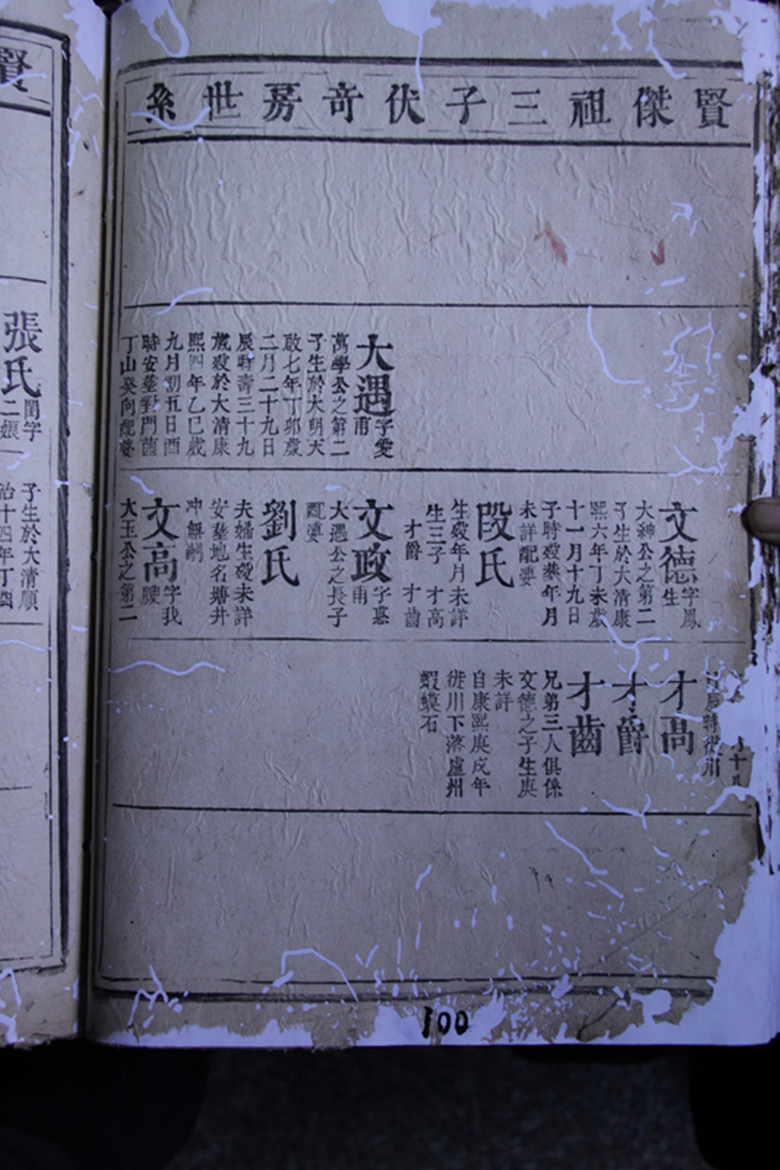 賢傑祖三子伏奇房世系
大遇字愛
甫
萬學公之第二
子生於大明天
啟七年丁卯歲
二月二十九日
辰時壽三十九
歲歿於大清康
熙四年乙巳歲
九月初五日酉
時安塟對門菌
丁山癸向配婆
文德字鳳
生
大紳公之第二
子生於大清康
熙六年丁未歲
十一月十九日
子時歿塟年月
未詳配婆
段氏
生歿年月未詳
生三子 才高
才爵 才齒
文政字惠
甫
大遇公之長子
配婆
劉氏
夫婦生歿未詳
安塟地名塘井
冲無嗣
文高字我
驶
大玉公之第二
才高
才爵
才齒
兄弟三人俱係
文德之子生庾
未詳
自康熙庚戌年
徙川下落盧州
蝦蟆石
賢
張氏閏字
二娘
子生於大清順
治十四年丁酉
100